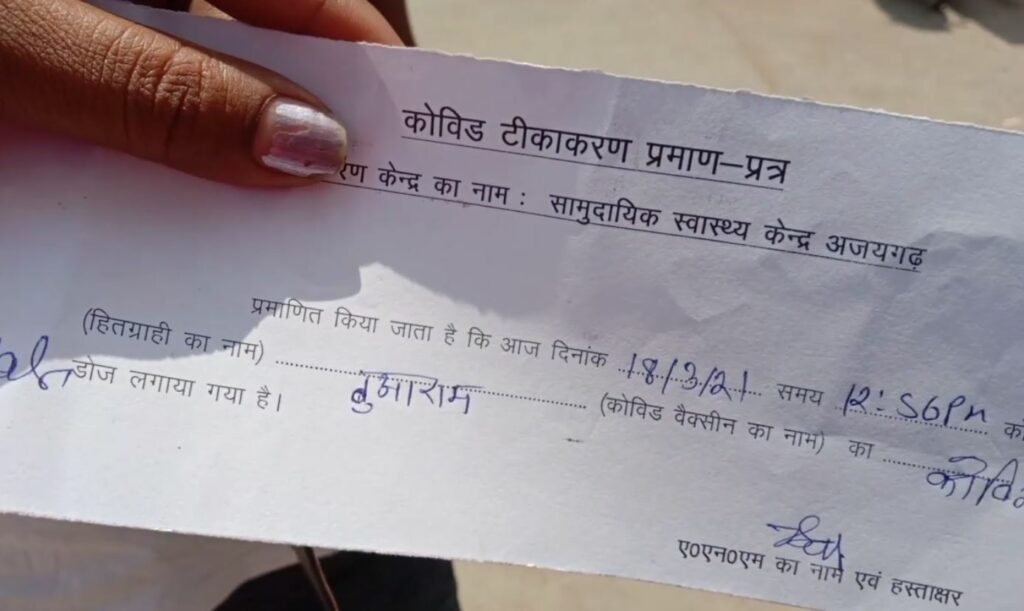 कोविड टीकाकरण प्रमाण–प्रत्र
रण केन्द्र का नाम : सामुदायिक स्वास्थ्य केन्द्र अजयगढ़
प्रमाणित किया जाता है कि आज दिनांक 18/3/21 समय 12:56Pm को
(हितग्राही का नाम) ............ (कोविड वैक्सीन का नाम) का ............
डोज लगाया गया है।
ए०एन०एम का नाम एवं हस्ताक्षर